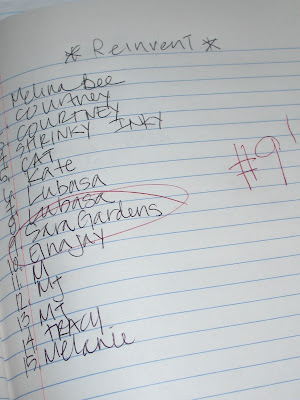 * Reinvent *
1 Melina Bee
2 Courtney
3 Courtney
4 Shrinky Inky
5 Cat
6 Kate
7 Lubasa
8 Lubasa
9 Sara Gardens
10 Ginajay
11. M
12. MJ
13 MJ
14 Tracy
15 Melanie
#9!